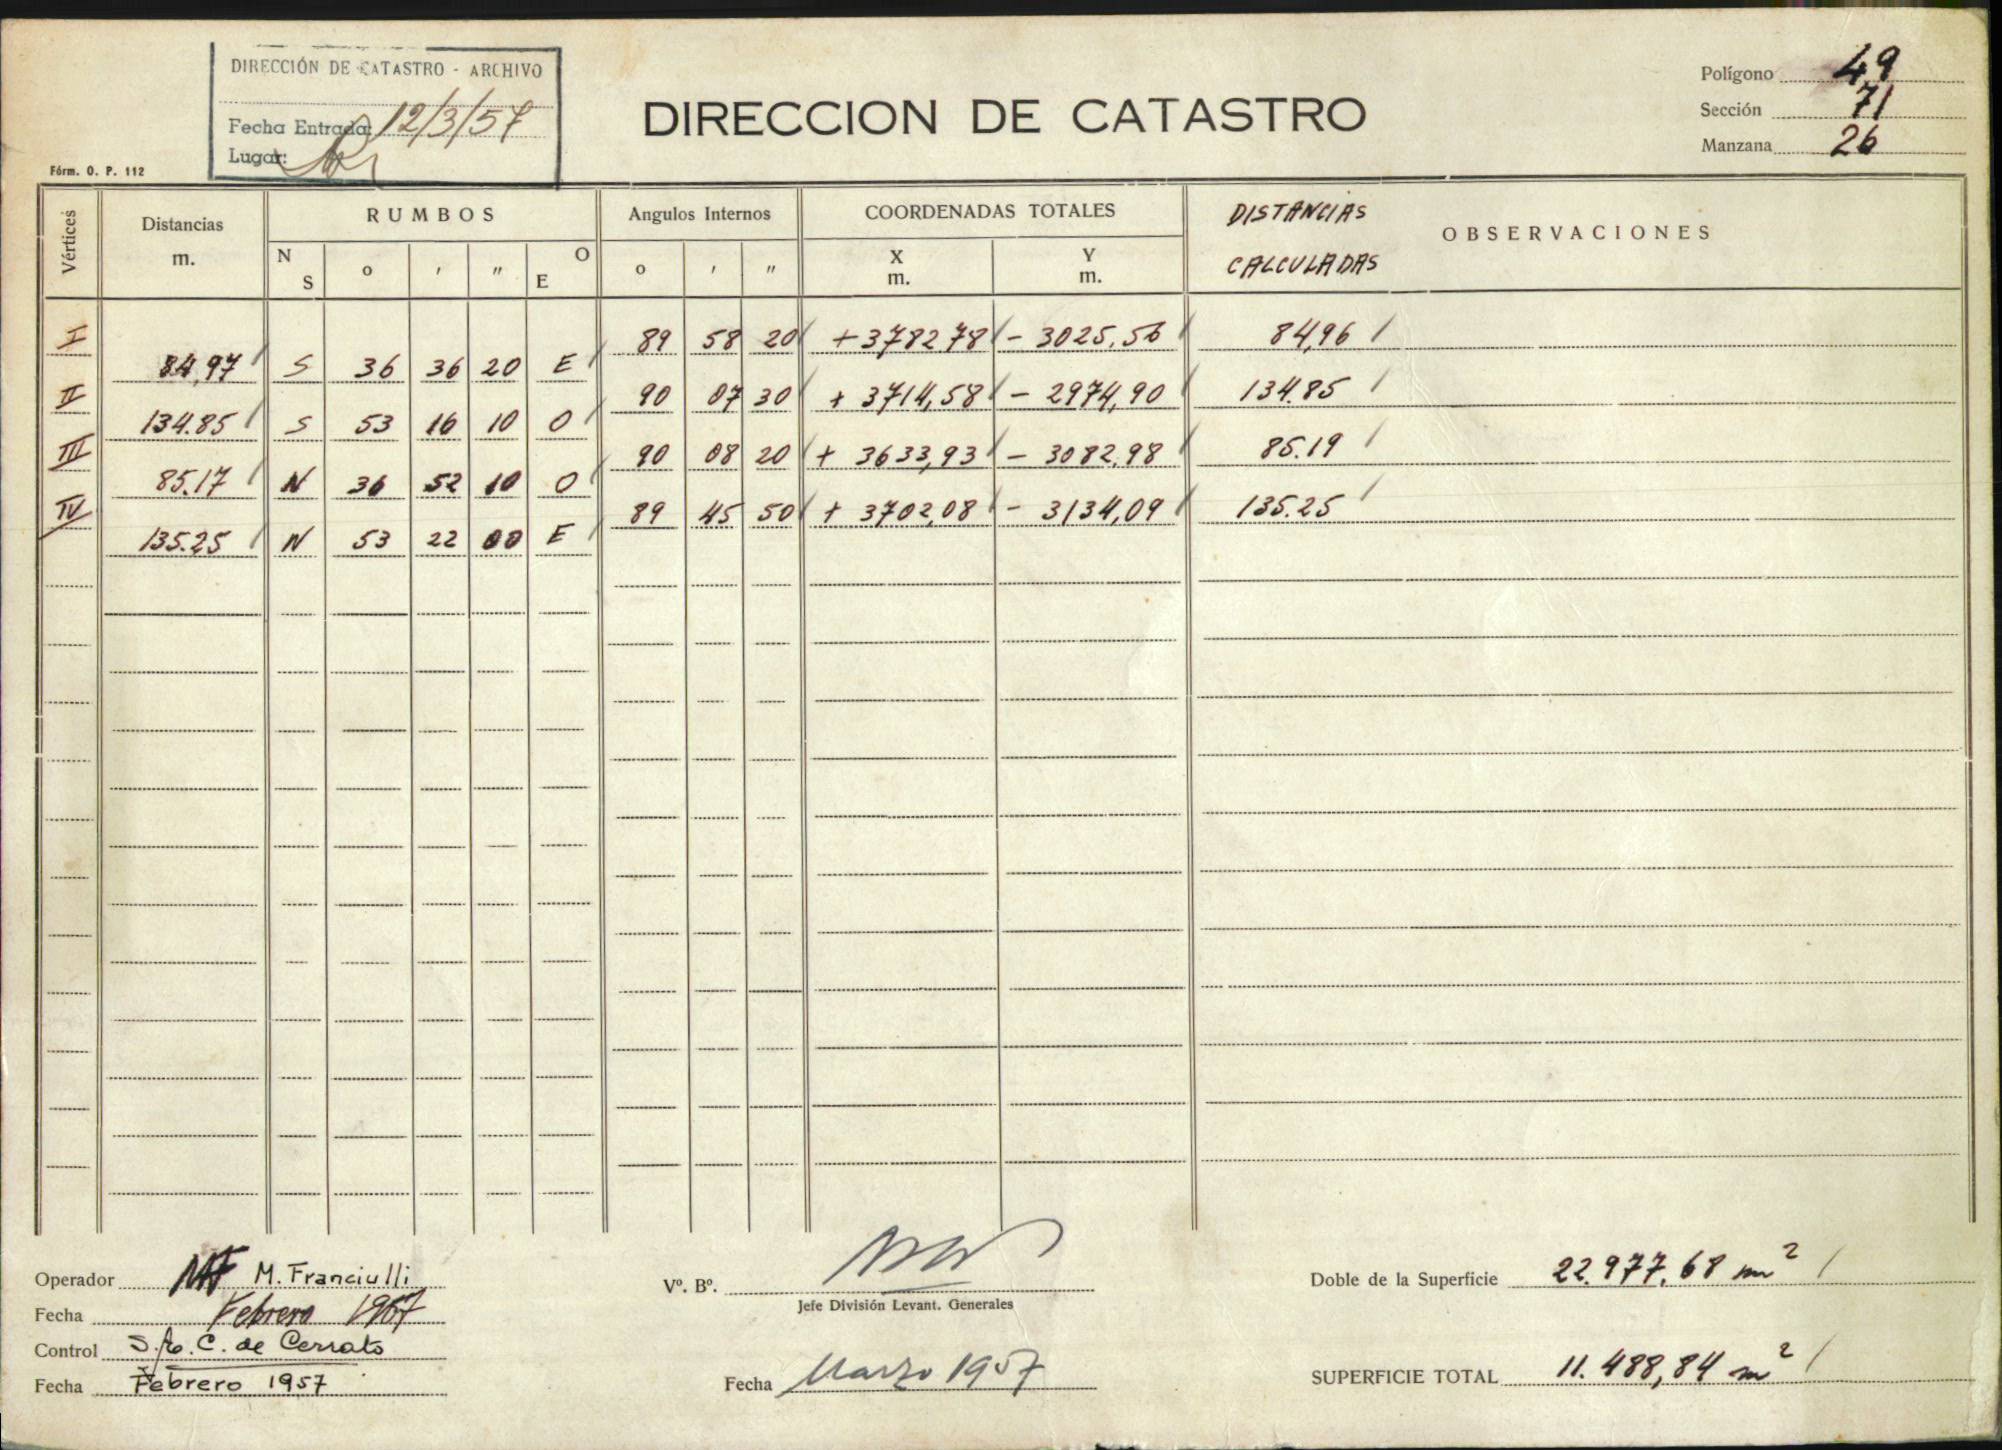 DIRECCIÓN DE CATASTRO - ARCHIVO
Fecha Entrada: 12/3/57
Lugar:
Fórm. O. P. 112
DIRECCION DE CATASTRO
Polígono 49
Sección 71
Manzana 26
Vértices Distancias m. RUMBOS Angulos Internos COORDENADAS TOTALES DISTANCIAS CALCULADAS OBSERVACIONES
N S o ' " O E o ' " X m. Y m.
I 89 58 20 + 3782 78 - 3025.56 84,96
84,97 S 36 36 20 E
II 90 07 30 + 3714,58 - 2974,90 134.85
134.85 S 53 16 10 O
III 90 08 20 + 3633,93 - 3082.98 85.19
85.17 N 36 52 10 O
IV 89 45 50 + 3702,08 - 3134,09 135.25
135.25 N 53 22 00 E
Operador MF M. Franciulli
Fecha Febrero 1957
Control C. de Cerrato
Fecha Febrero 1957
Vº. Bº.
Jefe División Levant. Generales
Fecha Marzo 1957
Doble de la Superficie 22.977,68 m²
SUPERFICIE TOTAL 11.488,84 m²